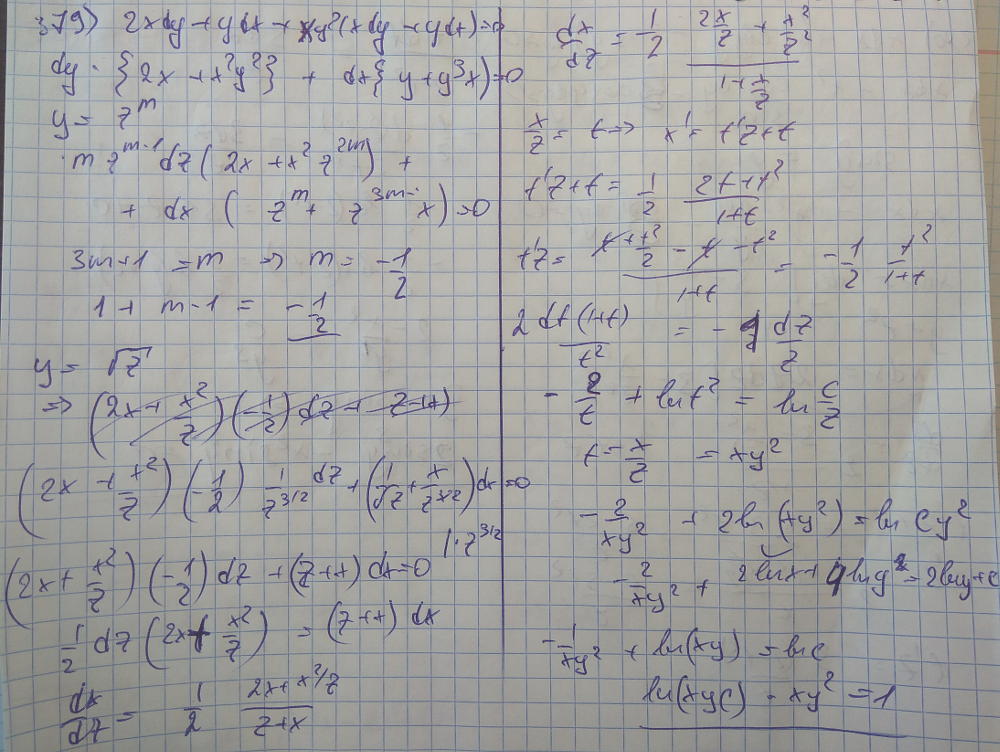 379) 2xdy + ydx + xy²(xdy + ydx) = 0
dy · {2x + x²y²} + dx{y + y³x) = 0
y = z^m
m z^(m-1) dz (2x + x² z^(2m)) +
+ dx (z^m + z^(3m) x) = 0
3m + 1 = m => m = -1/2
1 + m - 1 = -1/2
y = √z
(2x + x²/z)(-1/2) 1/z^(3/2) dz + (1/√z + x/z^(3/2)) dx = 0
| · z^(3/2)
(2x + x²/z)(-1/2) dz + (z + x) dx = 0
1/2 dz (2x + x²/z) = (z + x) dx
dx/dz = 1/2 (2x + x²/z)/(z + x)
dx/dz = 1/2 (2x/z + x²/z²)/(1 + x/z)
x/z = t => x' = t'z + t
t'z + t = 1/2 (2t + t²)/(1 + t)
t'z = (t + t²/2 - t - t²)/(1 + t) = -1/2 t²/(1 + t)
2 dt (1 + t)/t² = - dz/z
-2/t + ln t² = ln c/z
t = x/z = xy²
-2/xy² + 2ln(xy²) = ln Cy²
-2/xy² + 2lnx + 4lny = 2lny + c
-1/xy² + ln(xy) = ln c
ln(xyc) · xy² = 1